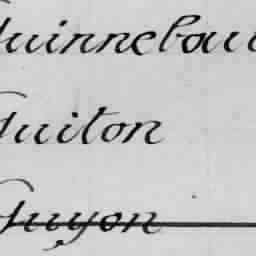 Guinnebau
Guiton
Guyon